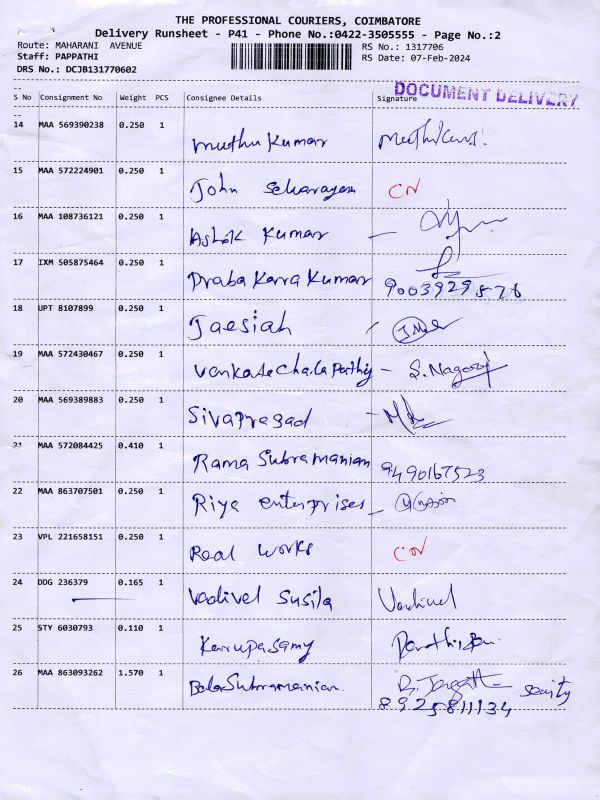 THE PROFESSIONAL COURIERS, COIMBATORE
Delivery Runsheet - P41 - Phone No.:0422-3505555 - Page No.:2
Route: MAHARANI AVENUE RS No.: 1317706
Staff: PAPPATHI RS Date: 07-Feb-2024
DRS No.: DCJB131770602
DOCUMENT DELIVERY
S No Consignment No Weight PCS Consignee Details Signature
14 MAA 569390238 0.250 1 muthu Kumar
15 MAA 572224901 0.250 1 John CN
16 MAA 108736121 0.250 1 Ashok Kumar -
17 IXM 505875464 0.250 1 Praba Karra Kumar
9003929876
18 UPT 8107899 0.250 1 Jaesiah
19 MAA 572430467 0.250 1 - S. Nagaraj
20 MAA 569389883 0.250 1 Sivaprasad -
21 MAA 572084425 0.410 1 Rama Subramanian 9490167523
22 MAA 863707501 0.250 1 Riya enterprises -
23 VPL 221658151 0.250 1 Real works CN
24 DDG 236379 0.165 1 Vadivel Susila Vadivel
25 STY 6030793 0.110 1 Karrupasamy
26 MAA 863093262 1.570 1 BalaSubramanian
8925811134